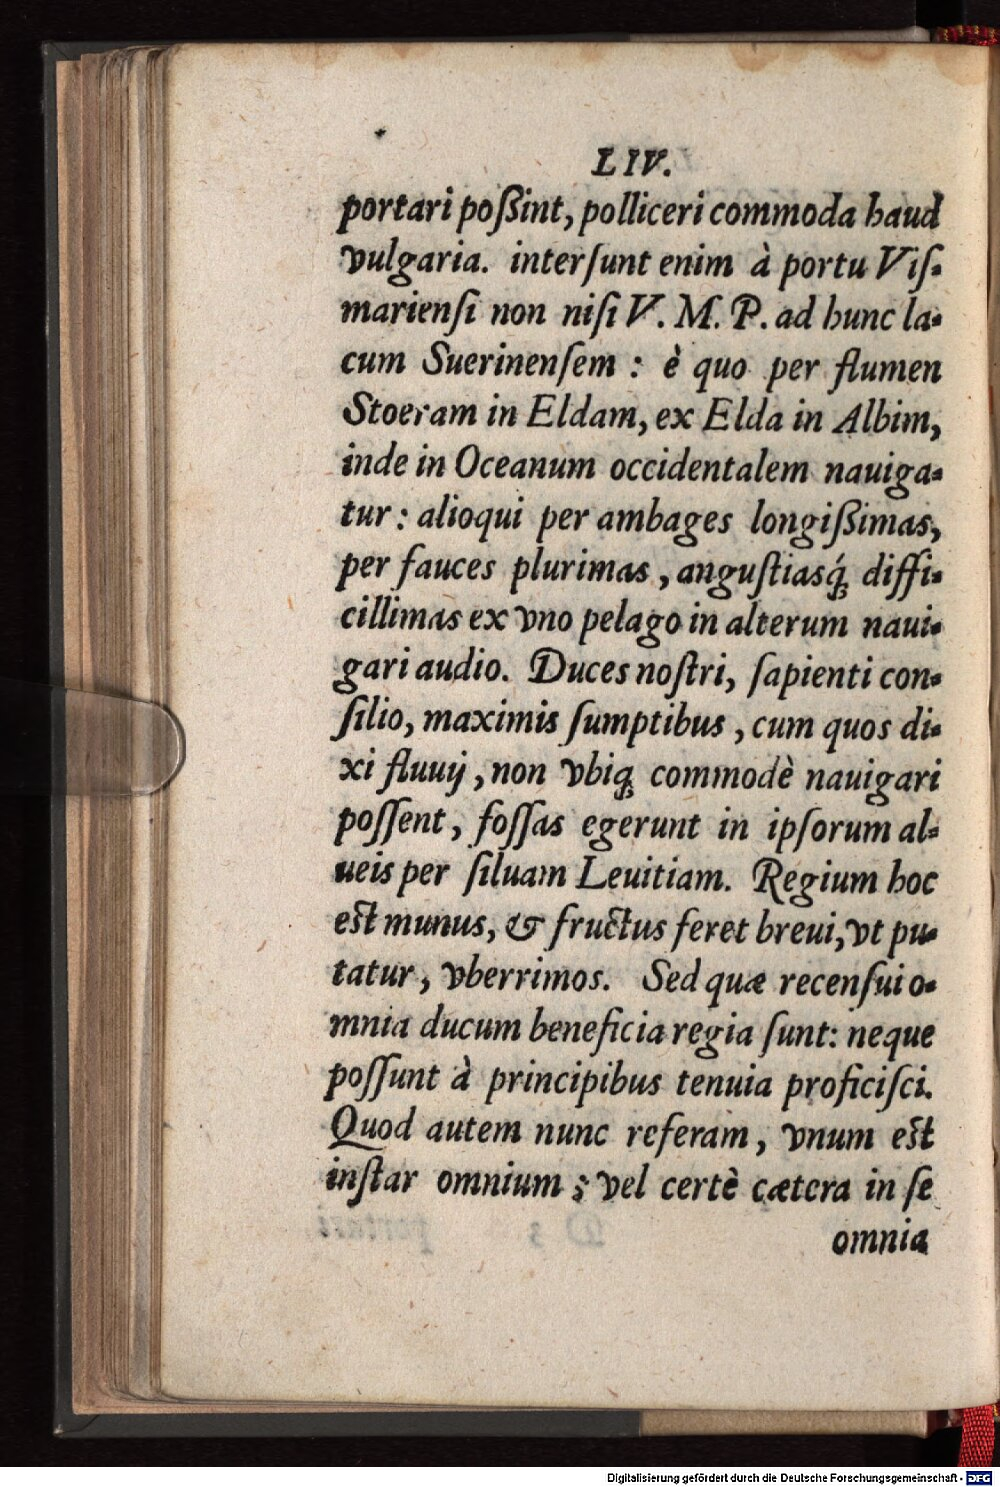 LIV.
portari poßint, polliceri commoda haud
vulgaria. interſunt enim à portu Viſ-
marienſi non niſi V. M. P. ad hunc la-
cum Suerinenſem : è quo per flumen
Stoeram in Eldam, ex Elda in Albim,
inde in Oceanum occidentalem nauiga-
tur : alioqui per ambages longißimas,
per fauces plurimas, anguſtiasq́; diffi-
cillimas ex vno pelago in alterum naui-
gari audio. Duces noſtri, ſapienti con-
ſilio, maximis ſumptibus, cum quos di-
xi fluuij, non vbiq; commodè nauigari
poſſent, foſſas egerunt in ipſorum al-
ueis per ſiluam Leuitiam. Regium hoc
eſt munus, & fructus feret breui, vt pu-
tatur, vberrimos. Sed quæ recenſui o-
mnia ducum beneficia regia ſunt: neque
poſſunt à principibus tenuia proficiſci.
Quod autem nunc referam, vnum eſt
inſtar omnium ; vel certè cætera in ſe
omnia
Digitalisierung gefördert durch die Deutsche Forschungsgemeinschaft - DFG